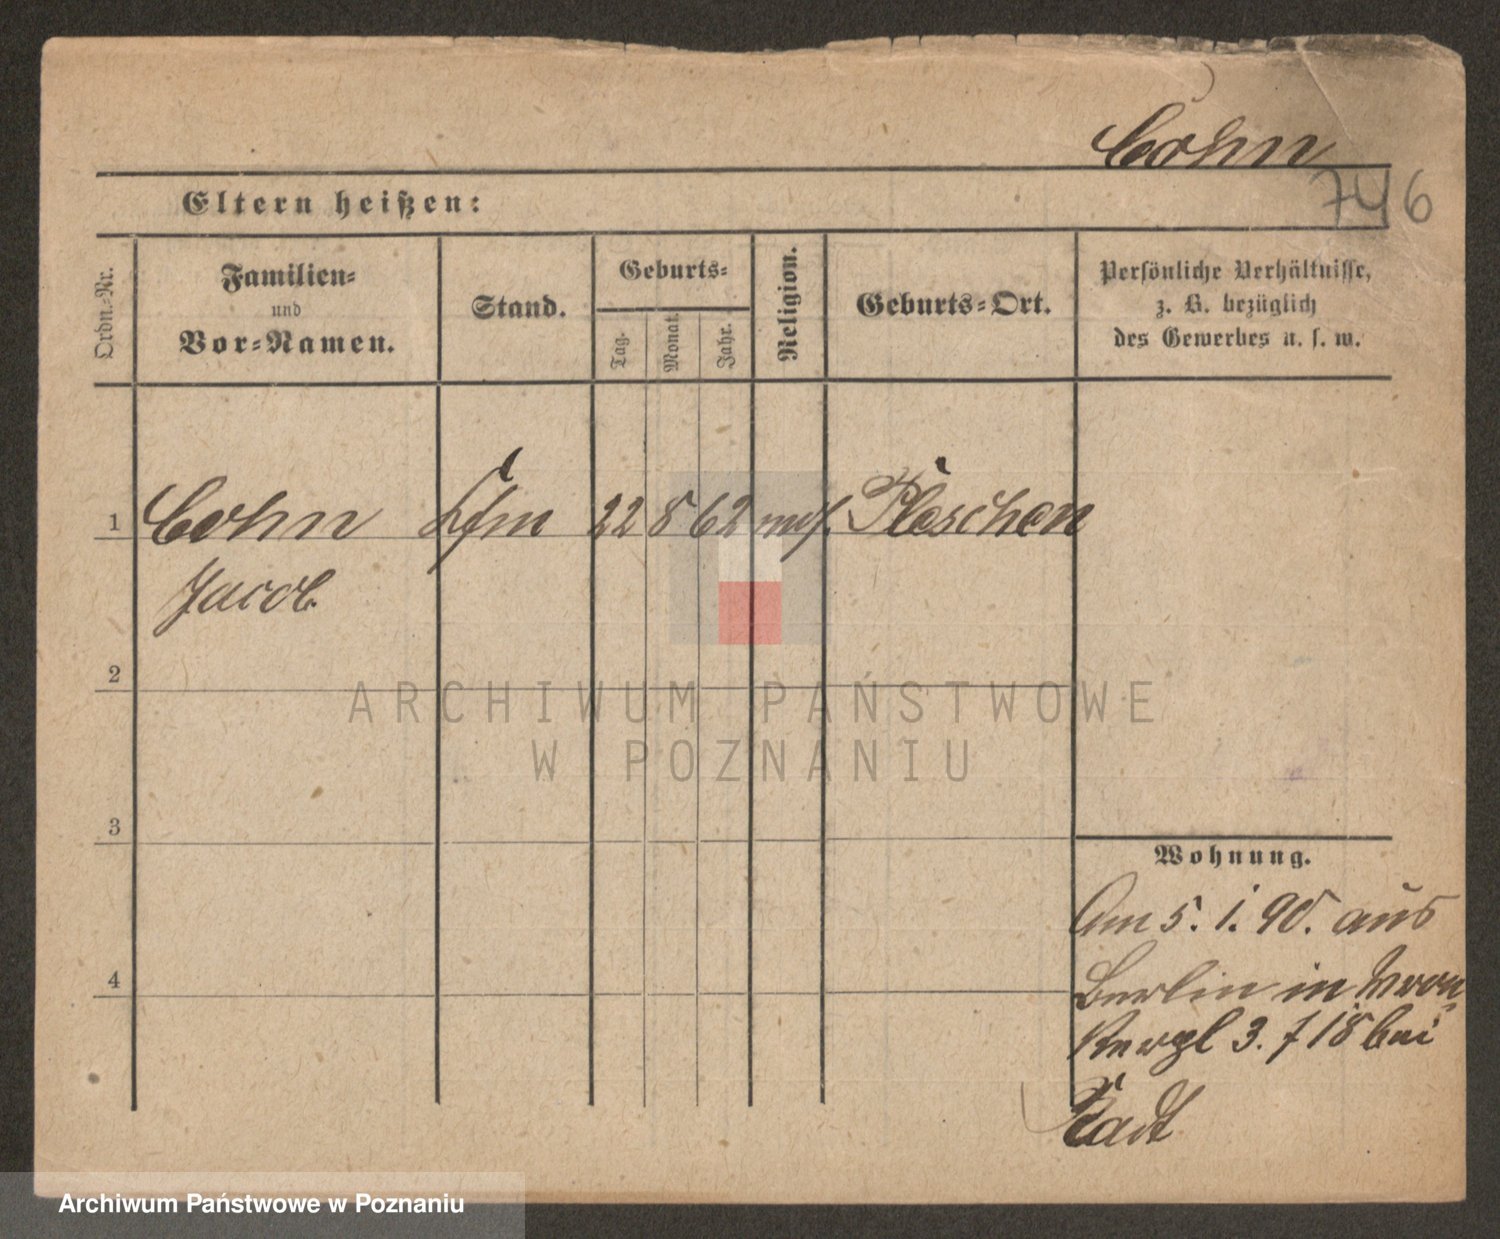 Cohn
746
Eltern heißen:
Ordn.-Nr.
Familien-
und
Vor-Namen.
Stand.
Geburts-
Tag.
Monat.
Jahr.
Religion.
Geburts-Ort.
Persönliche Verhältnisse,
z. B. bezüglich
des Gewerbes u. s. w.
1 Cohn Kfm 22 8 62 mos. Pleschen
Jacob
2
3
4
Wohnung.
Am 5. 1. 90. aus
Berlin in
3. 718 bei
Radt
ARCHIWUM PAŃSTWOWE
W POZNANIU
Archiwum Państwowe w Poznaniu